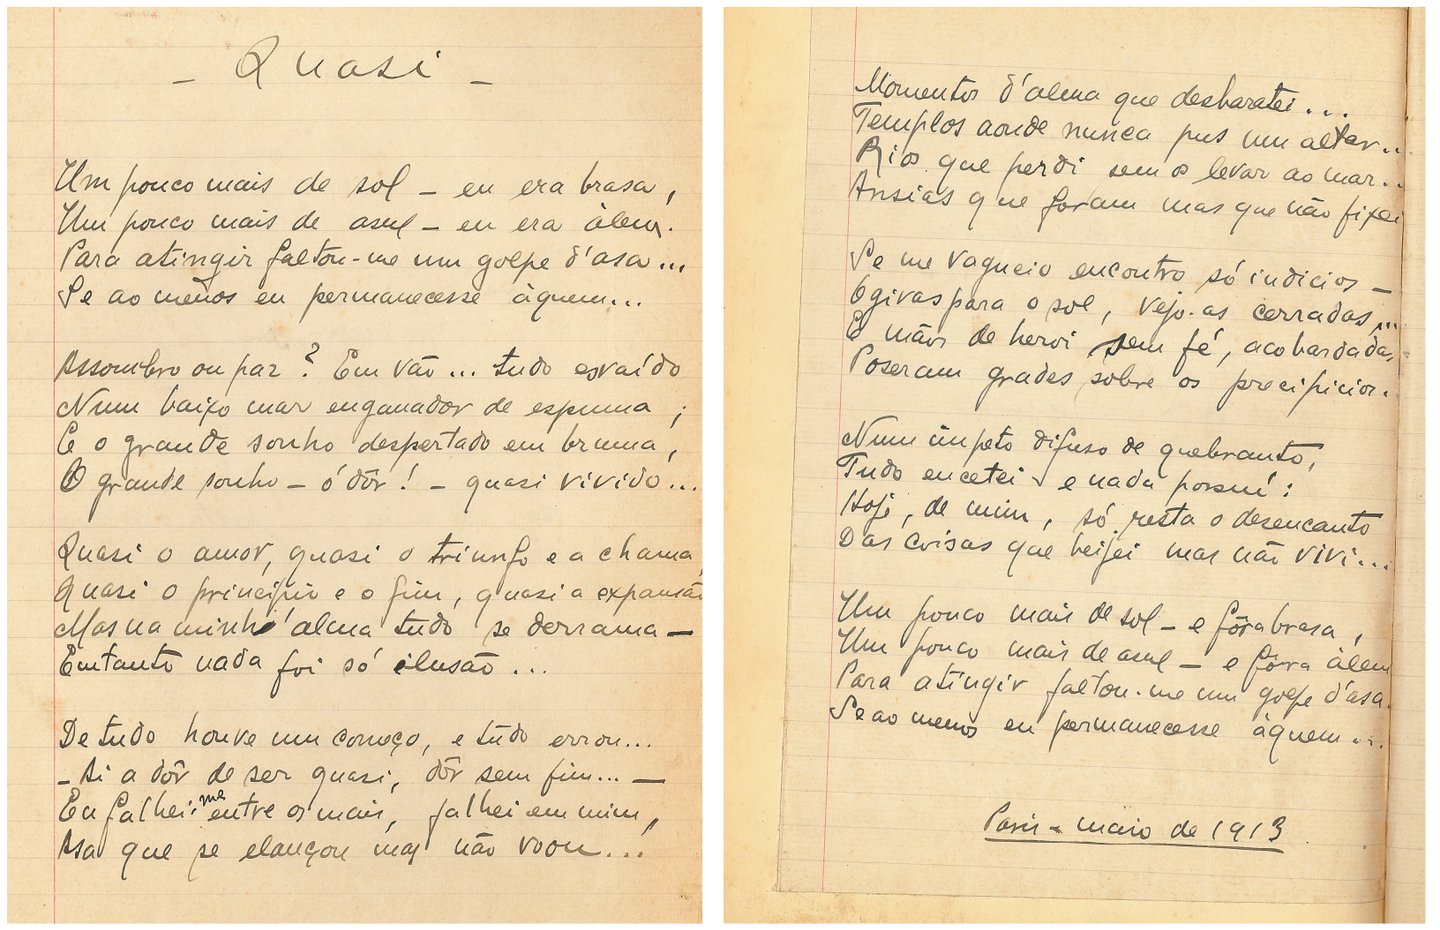 - Quasi -
Um pouco mais de sol - eu era brasa,
Um pouco mais de asul - eu era àlem.
Para atingir faltou-me um golpe d'asa...
Se ao menos eu permanecesse àquem...
Assombro ou paz? Em vão... tudo esvaído
Num baixo mar enganador de espuma;
E o grande sonho despertado em bruma,
O grande sonho - ó dôr! - quasi vivido...
Quasi o amor, quasi o triunfo e a chama,
Quasi o principio e o fim, quasi a expansão
Mas na minh'alma tudo se derrama -
Emtanto nada foi só ilusão...
De tudo houve um começo, e tudo errou...
- Ai a dôr de ser quasi, dôr sem fim... -
Eu falhei-me entre os mais, falhei em mim,
Asa que se elançou mas não voou...
Momentos d'alma que desbaratei...
Templos aonde nunca pus um altar...
Rios que perdi sem os levar ao mar...
Ansias que foram mas que não fixei
Se me vagueio encontro só indicios -
Ogivas para o sol, vejo-as cerradas...
E mãos de heroi sem fé, acobardadas,
Poseram grades sobre os precipicios.
Num ímpeto difuso de quebranto,
Tudo encetei e nada possuí:
Hoje, de mim, só resta o desencanto
Das coisas que beijei mas não vivi...
Um pouco mais de sol - e fôra brasa,
Um pouco mais de asul - e fôra àlem
Para atingir faltou-me um golpe d'asa.
Se ao menos eu permanecesse àquem...
Paris - maio de 1913